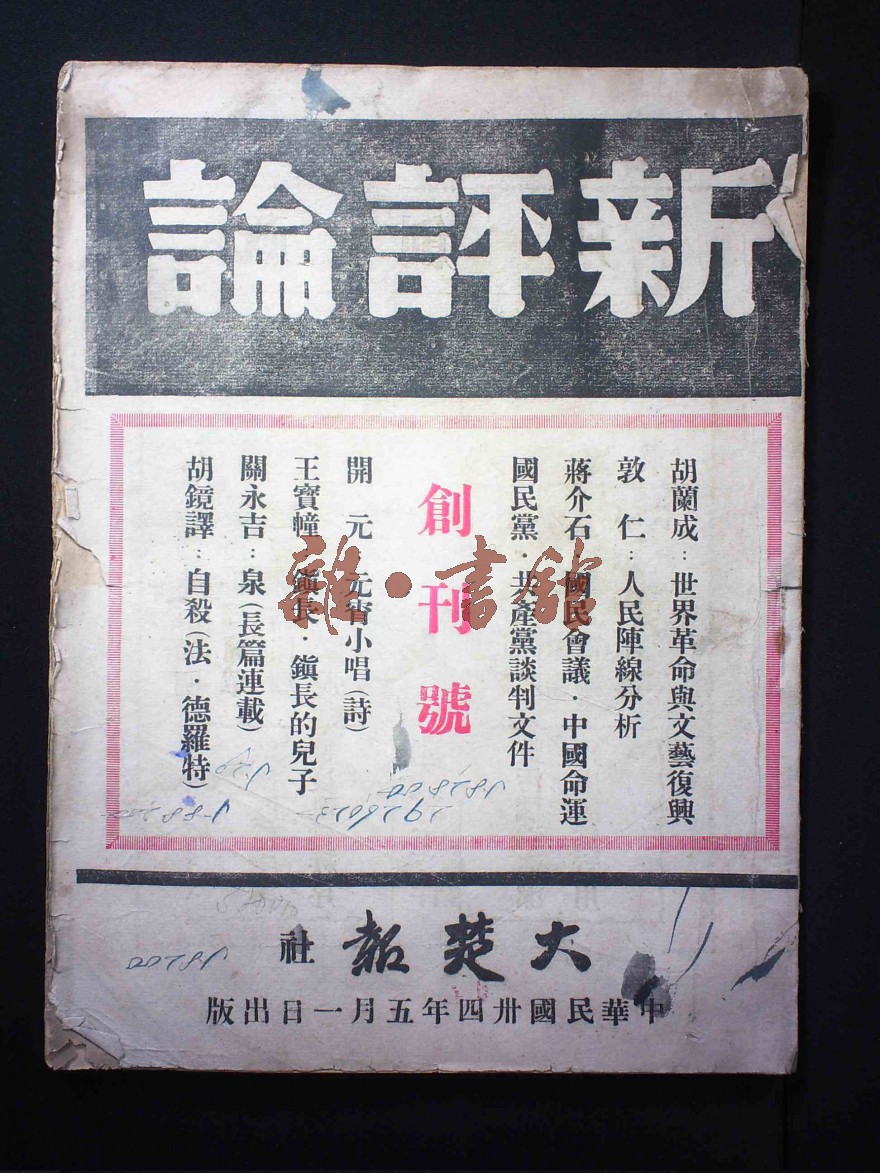 新評論
胡蘭成：世界革命與文藝復興
敦　仁：人民陣線分析
蔣介石・國民會議・中國命運
國民黨・共產黨談判文件
創刊號
開　元　元宵小唱（詩）
王寶幢　鎭長・鎭長的兒子
關永吉：泉（長篇連載）
胡鏡譯：自殺（法・德羅特）
雜・書館
大楚報社
中華民國卅四年五月一日出版